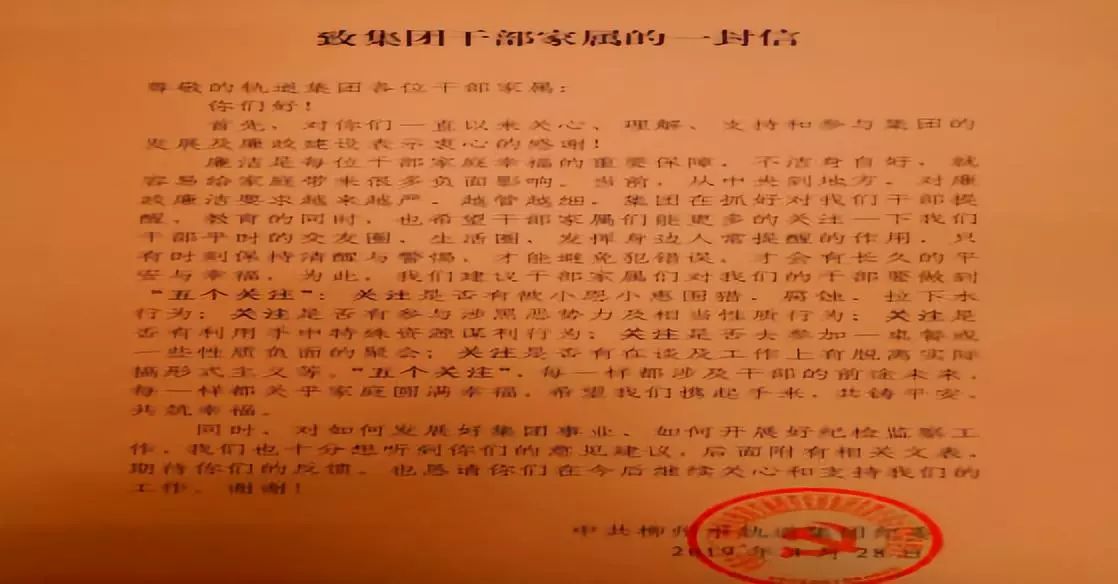 致集团干部家属的一封信
尊敬的轨道集团各位干部家属：
你们好！
首先，对你们一直以来关心、理解、支持和参与集团的
发展及廉政建设表示衷心的感谢！
廉洁是每位干部家庭幸福的重要保障，不洁身自好，就
容易给家庭带来很多负面影响。当前，从中央到地方，对廉
政廉洁要求越来越严，越管越细。集团在抓好对我们干部提
醒、教育的同时，也希望干部家属们能更多的关注一下我们
干部平时的交友圈、生活圈，发挥身边人常提醒的作用，只
有时刻保持清醒与警惕，才能避免犯错误，才会有长久的平
安与幸福，为此，我们建议干部家属们对我们的干部要做到
“五个关注”：关注是否有被小恩小惠围猎、腐蚀、拉下水
行为；关注是否有参与涉黑恶势力及相当性质行为；关注是
否有利用手中特殊资源谋利行为；关注是否去参加一桌餐或
一些性质负面的聚会；关注是否有在谈及工作上有脱离实际
搞形式主义等。“五个关注”，每一样都涉及干部的前途未来，
每一样都关乎家庭圆满幸福，希望我们携起手来，共铸平安、
共筑幸福。
同时，对如何发展好集团事业、如何开展好纪检监察工
作，我们也十分想听到你们的意见建议，后面附有相关文表，
期待你们的反馈。也恳请你们在今后继续关心和支持我们的
工作。谢谢！
中共柳州市轨道集团纪委
2019年 月28日